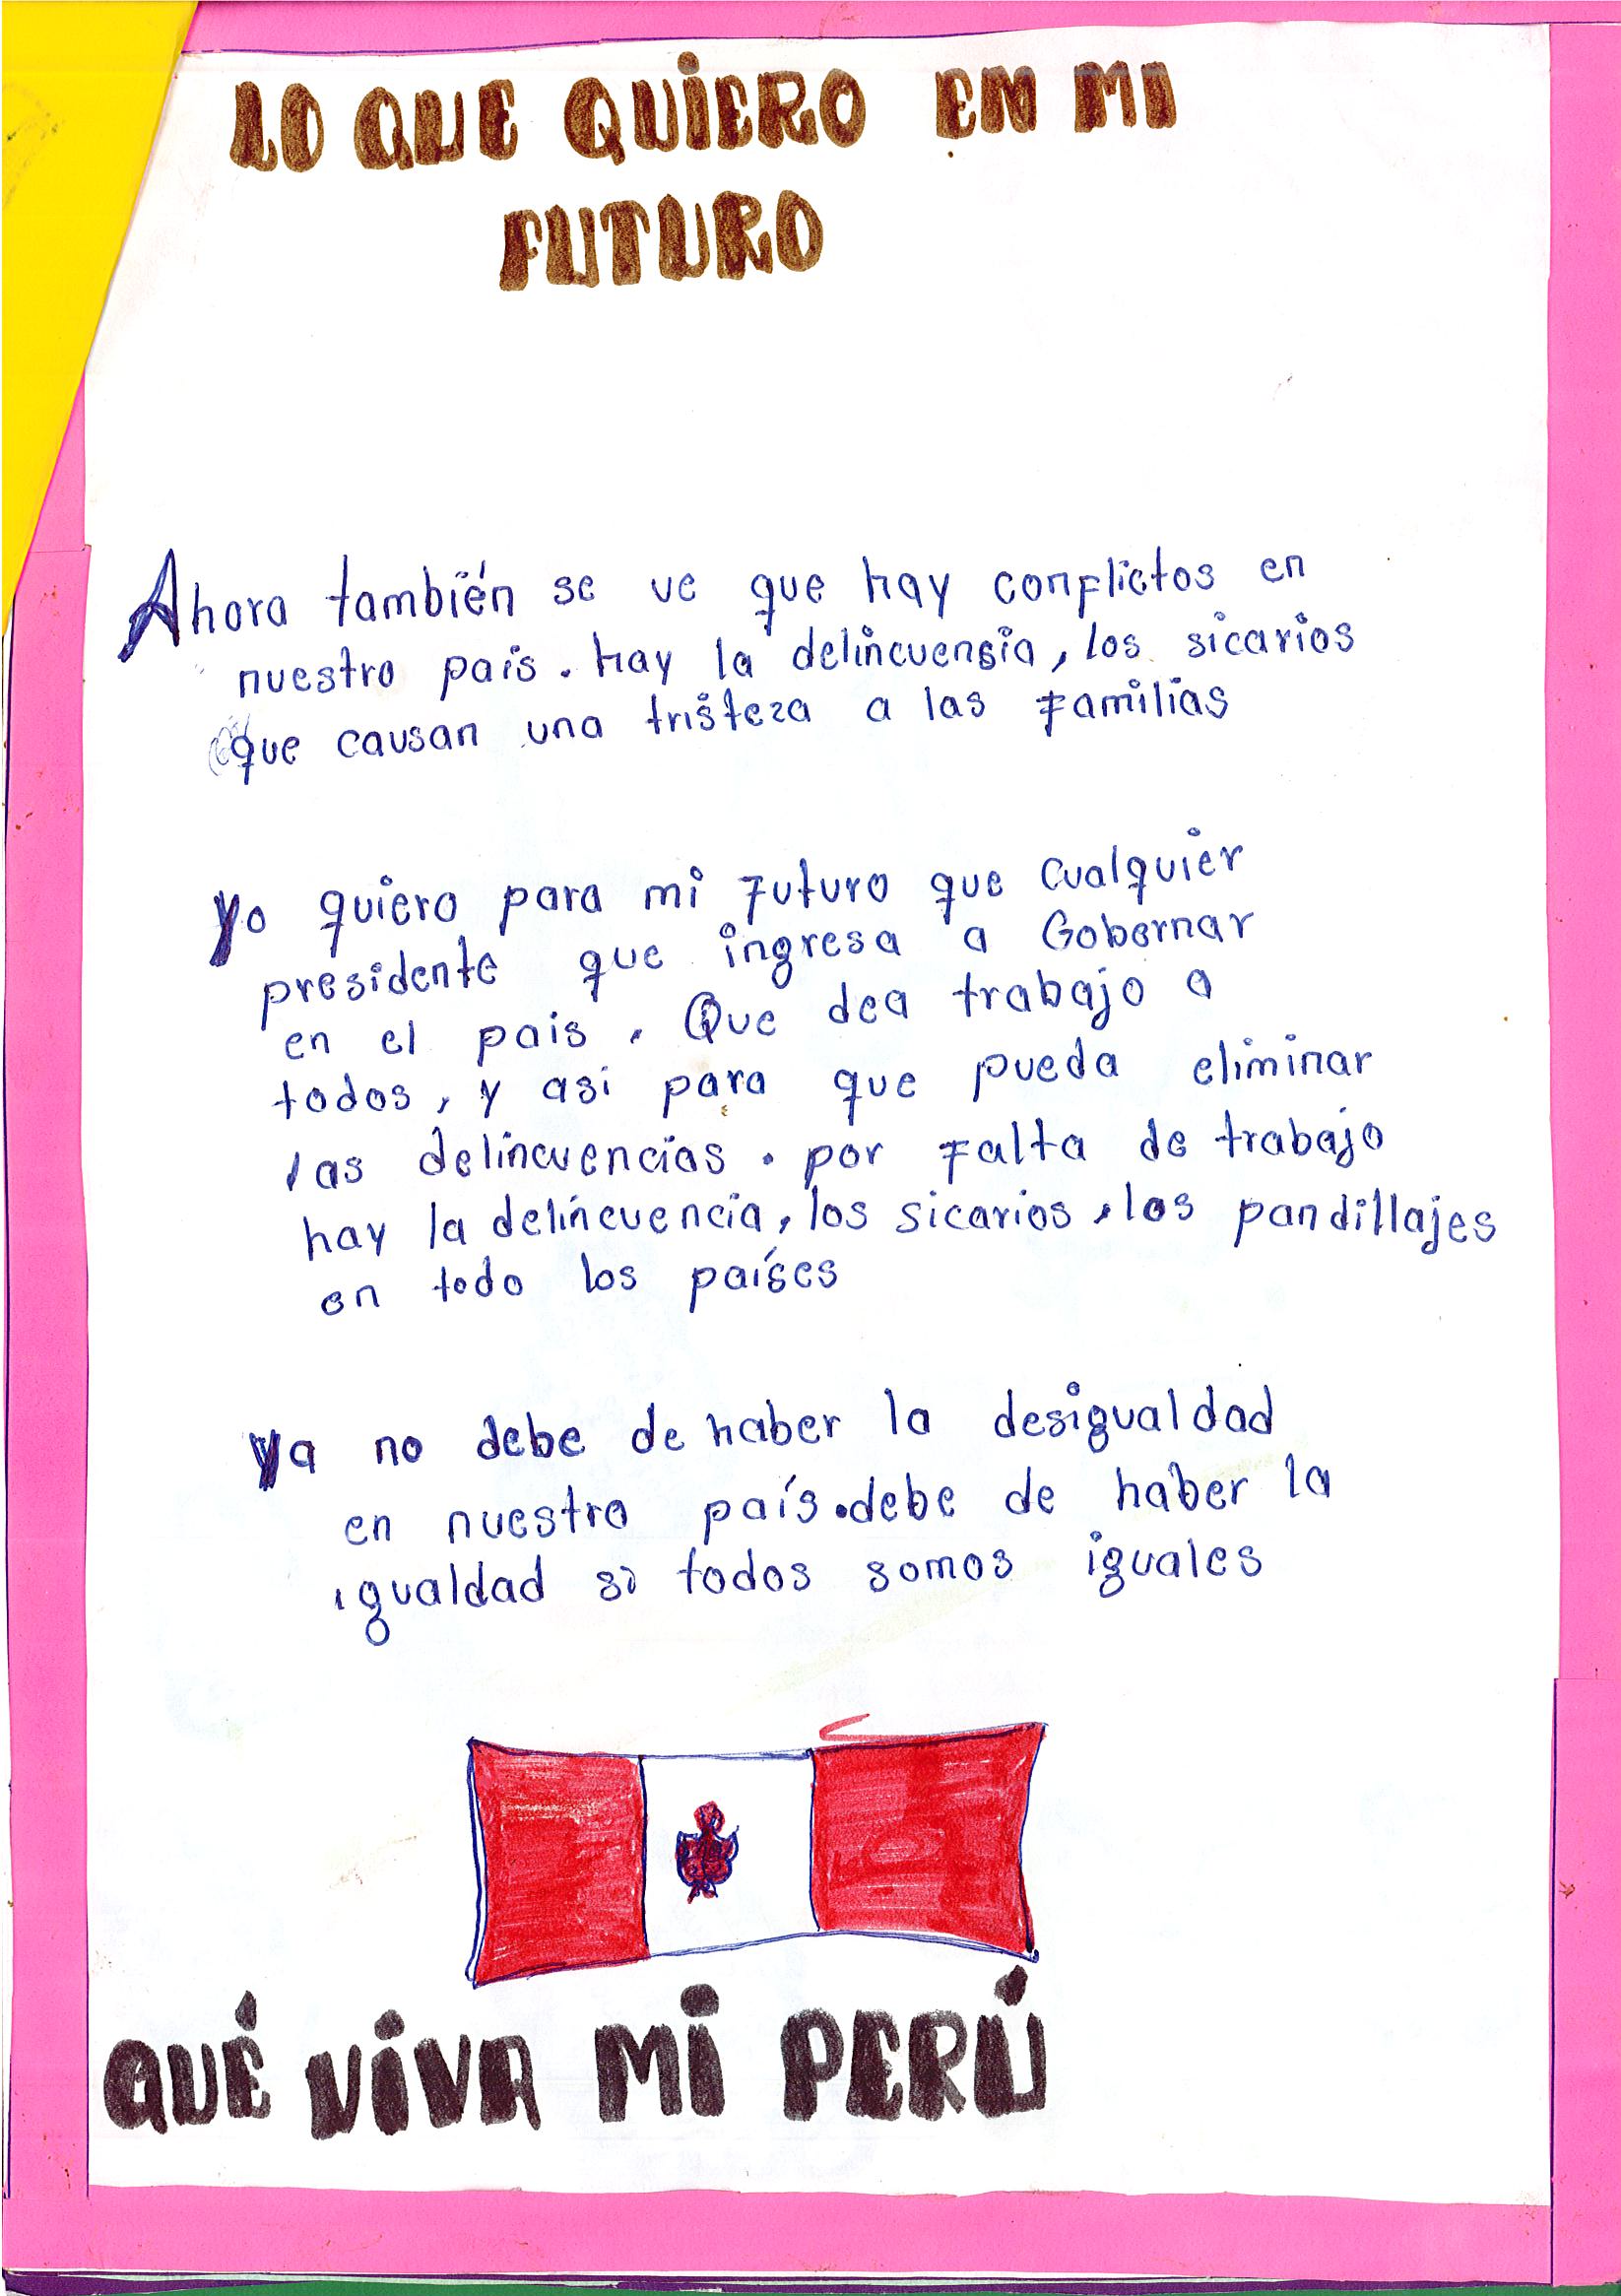 LO QUE QUIERO EN MI
FUTURO
Ahora también se ve que hay conflictos en
nuestro país. hay la delincuensia, los sicarios
que causan una tristeza a las familias
yo quiero para mi futuro que cualquier
presidente que ingresa a Gobernar
en el pais. Que dea trabajo a
todos, y asi para que pueda eliminar
las delincuencias. por falta de trabajo
hay la delincuencia, los sicarios, los pandillajes
en todo los países
ya no debe de haber la desigualdad
en nuestro país. debe de haber la
igualdad si todos somos iguales
QUÉ VIVA MI PERÚ